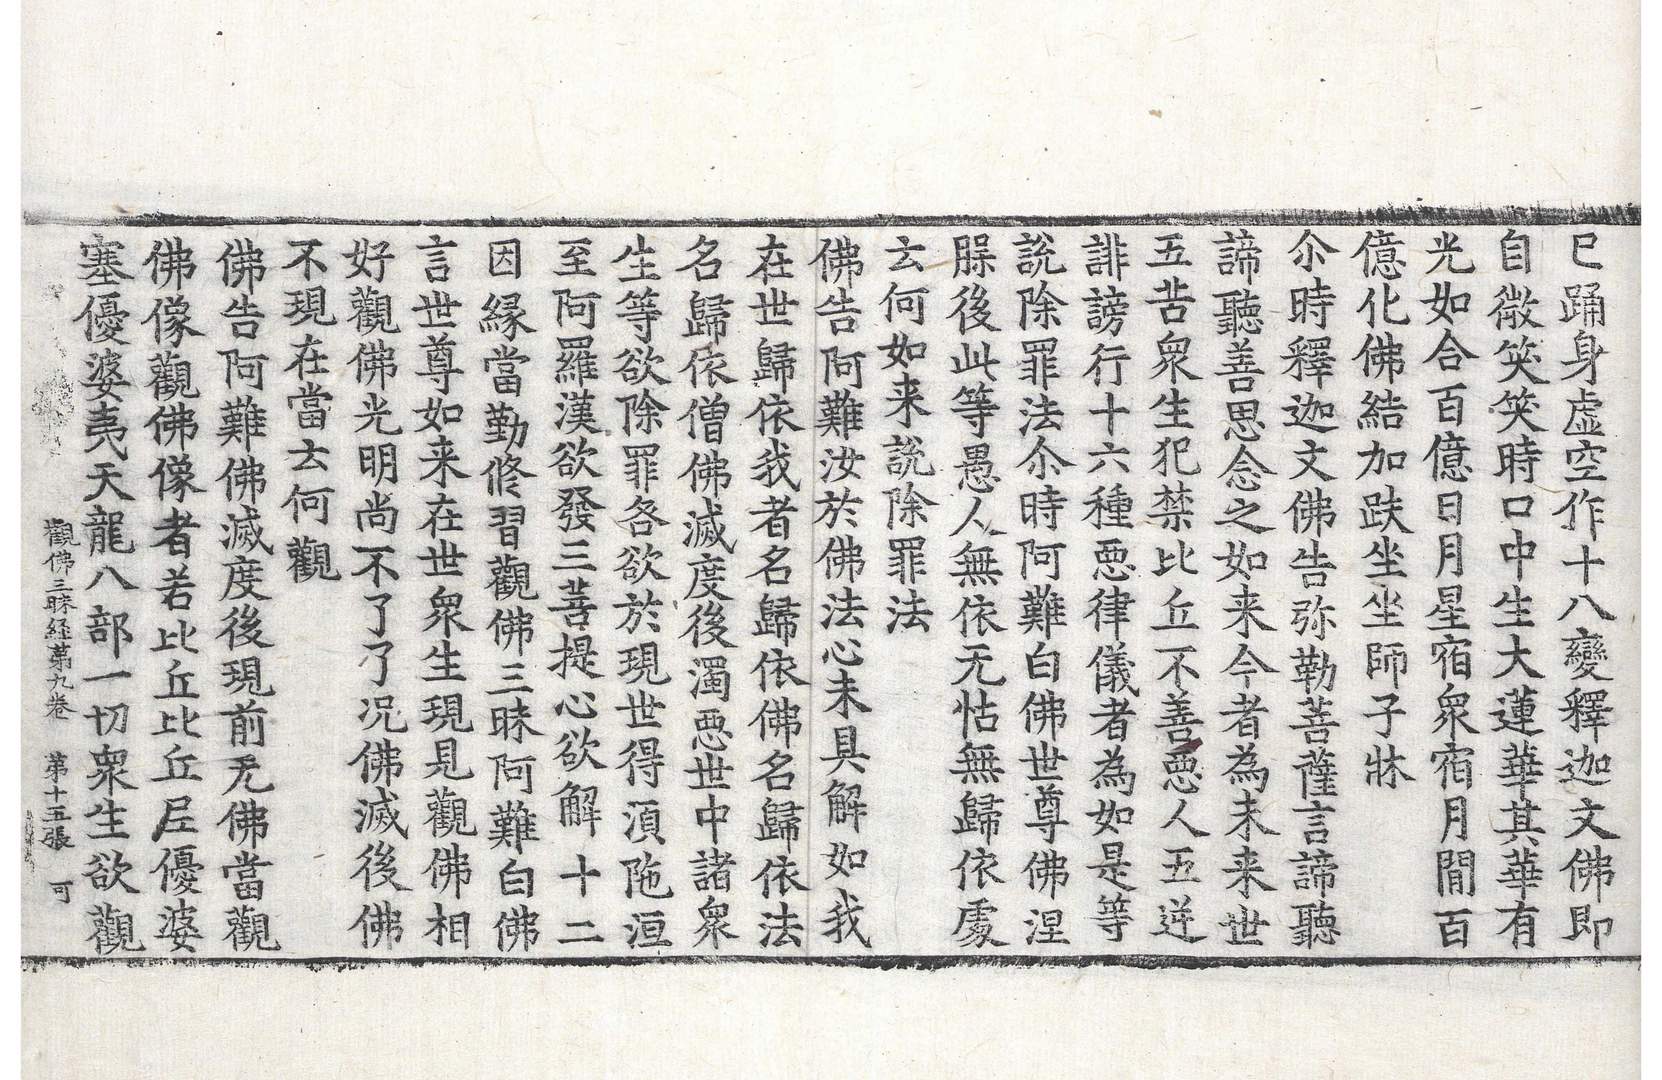 已踊身虛空作十八變釋迦文佛即
自微笑笑時口中生大蓮華其華有
光如合百億日月星宿衆宿月間百
億化佛結加趺坐坐師子牀
尒時釋迦文佛告弥勒菩薩言諦聽
諦聽善思念之如来今者為未来世
五苦衆生犯禁比丘不善惡人五逆
誹謗行十六種惡律儀者為如是等
說除罪法尒時阿難白佛世尊佛涅
脵後此等愚人無依无怙無歸依處
云何如来說除罪法
佛告阿難汝於佛法心未具解如我
在世歸依我者名歸依佛名歸依法
名歸依僧佛滅度後濁惡世中諸衆
生等欲除罪各欲於現世得湏陁洹
至阿羅漢欲發三菩提心欲解十二
因縁當勤修習觀佛三昧阿難白佛
言世尊如来在世衆生現見觀佛相
好觀佛光明尚不了了况佛滅後佛
不現在當云何觀
佛告阿難佛滅度後現前无佛當觀
佛像觀佛像者若比丘比丘尼優婆
塞優婆夷天龍八部一切衆生欲觀
觀佛三昧経第九卷　第十五張　可